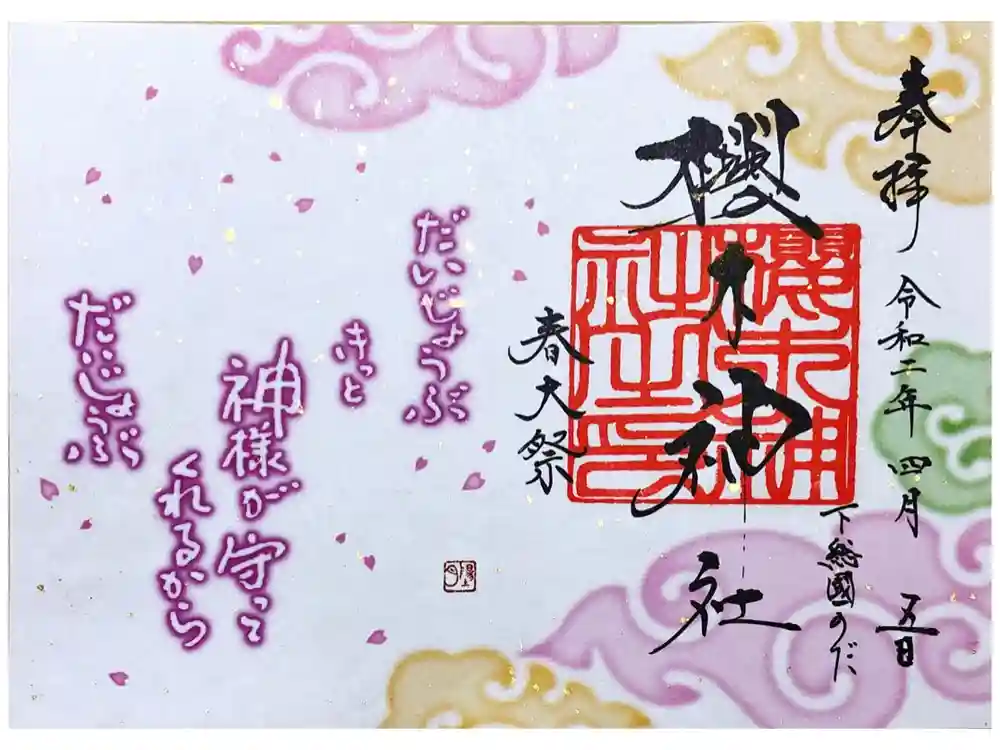 奉拝
令和二年四月五日
下総國のだ
櫻木神社
櫻木神社之印
春大祭
だいじょうぶ
きっと
神様が守って
くれるから
だいじょうぶ